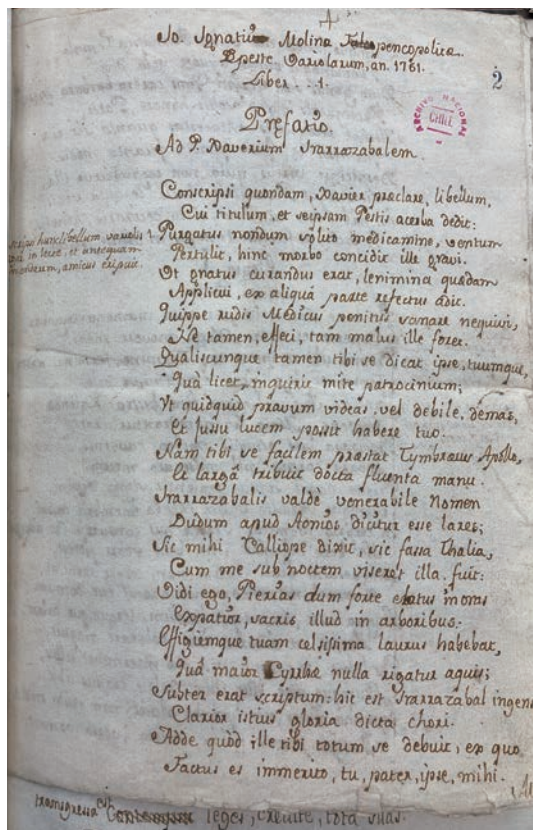 Jo. Ignatius Molina Talcopencopolitæ
Peste Variolarum, an. 1761.
Liber . . 1.
2
ARCHIVO NACIONAL
CHILE
Pręfatio.
Ad P. Xaverium Irarrazabalem
Conscripsi quondam, Xavier præclare, libellum,
Cui titulum, et seipsam Pestis acerba dedit:
hunc libellum variolis
in lecto, et antequam
amicus eripuit.
Purgatus nondum medicamine, ventum
Pertulit, hinc morbo concidit ille gravi.
Ut gnatus curandus erat, lenimina quædam
Applicui, ex aliquâ parte refectus adit.
Quippe rudis Medicus penitus sanare nequivi,
Ne tamen, effeci, tam malus ille foret.
Qualiscunque tamen tibi se dicat ipse, tuumque,
Quà licet, inquirit mite patrocinium;
Ut quidquid pravum videas, vel debile, demas,
Et jussu lucem possit habere tuo.
Nam tibi se facilem præstat Tymbræus Apollo,
Et largâ tribuit docta fluenta manu.
Irarrazabalis valdè venerabile Nomen
Dudum apud Aonios dicitur esse lares;
Sic mihi Calliope dixit, sic fassa Thalia,
Cum me sub noctem viseret illa, fuit:
Vidi ego, Pierias dum forte moras
Expatior, sacris illud in arboribus:
Effigiemque tuam celsissima laurus habebat,
Quâ maior Cyrrhæ nulla rigatur aquis;
Subter erat scriptum: hic est Irarrazabal ingens
Clarior istius gloria dicta chori.
Adde quòd ille tibi totum se debuit, ex quo
Factus es immerito, tu, pater, ipse, mihi.
transgressa est leges, tota suas.